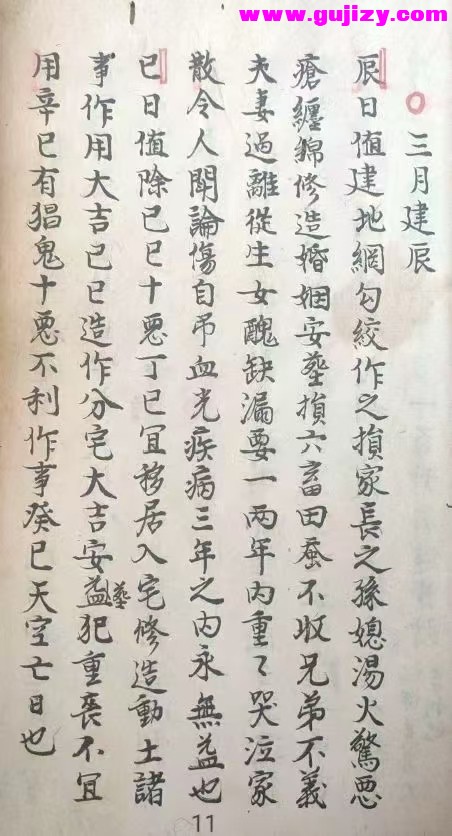 www.gujizy.com
三月建辰
辰日值建地網勾絞作之損家長之孫媳湯火驚惡
瘡纏綿修造婚姻安塟損六畜田蚕不收兄弟不義
夫妻過離從生女醜缺漏要一両年內重々哭泣家
散令人聞論傷自吊血光疾病三年之內永無益也
巳日值除己巳十惡丁巳宜移居入宅修造動土諸
事作用大吉己巳造作分宅大吉安塟犯重喪不宜
用辛巳有猖鬼十惡不利作事癸巳天空亡日也
11